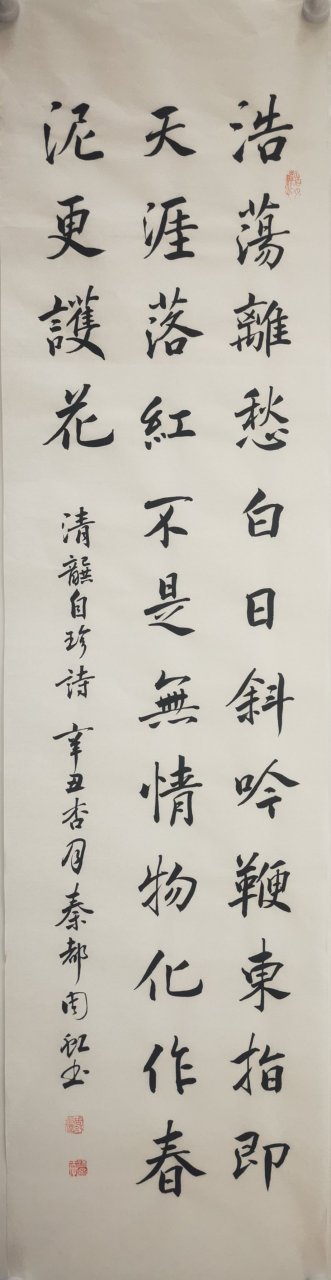 浩蕩離愁白日斜吟鞭東指即
天涯落紅不是無情物化作春
泥更護花
清龔自珍詩 辛丑杏月秦都周虹书